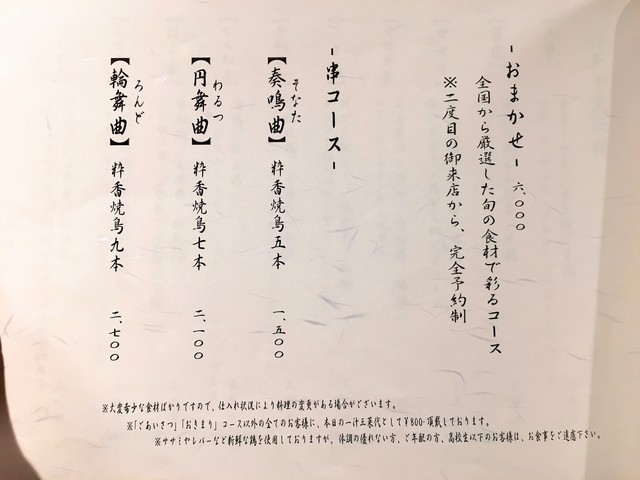 -おまかせ- 六、〇〇〇
全国から厳選した旬の食材で彩るコース
※二度目の御来店から、完全予約制
-串コース-
【奏鳴曲】そなた 粋香焼鳥五本 一、五〇〇
【円舞曲】わるつ 粋香焼鳥七本 二、一〇〇
【輪舞曲】ろんど 粋香焼鳥九本 二、七〇〇
※大変希少な食材ばかりですので、仕入れ状況により料理の変更がある場合がございます。
※「ごあいさつ」「おきまり」コース以外の全てのお客様に、本日の一汁三菜代として¥800-頂戴しております。
※ササミやレバーなど新鮮な鶏を使用しておりますが、体調の優れない方、ご年配の方、高校生以下のお客様は、お食事をご遠慮下さい。